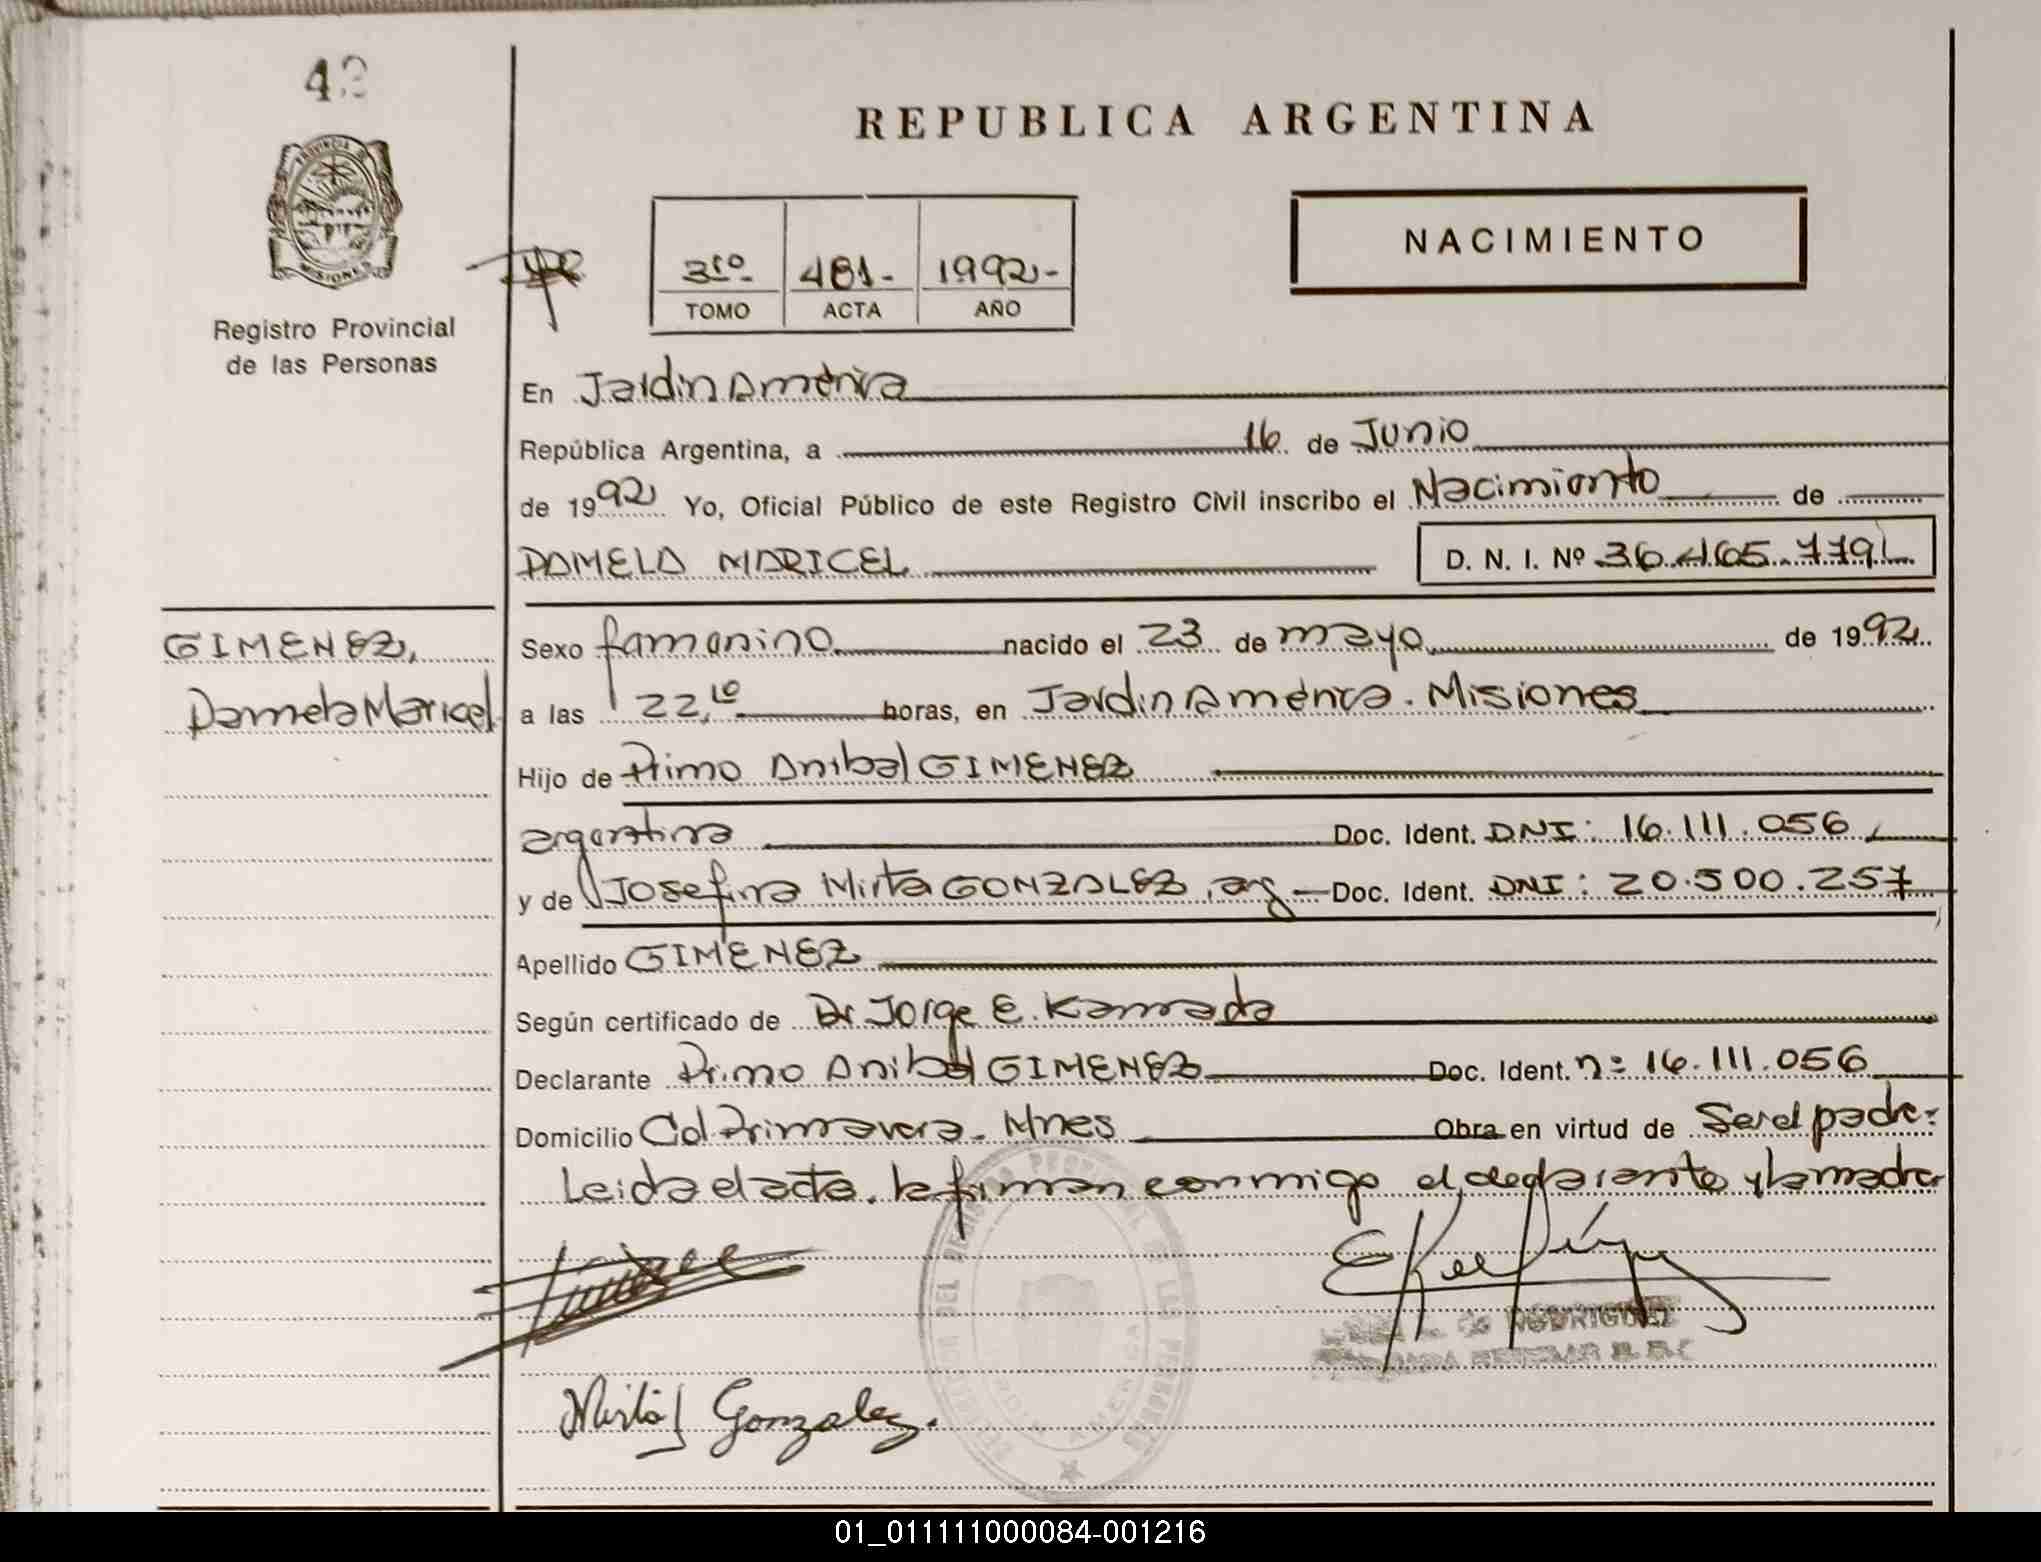 42
REPUBLICA ARGENTINA
NACIMIENTO
PROVINCIA DE
MISIONES
Registro Provincial
de las Personas
3ro 481- 1992-
TOMO ACTA AÑO
En Jardin América
República Argentina, a 16 de Junio
de 1992 Yo, Oficial Público de este Registro Civil inscribo el Nacimiento de
PAMELA MARICEL D. N. I. Nº 36.465.779
GIMENEZ,
Pamela Maricel
Sexo femenino nacido el 23 de mayo de 1992
a las 22,10 horas, en Jardin América. Misiones
Hijo de Primo Anibal GIMENEZ
argentina Doc. Ident. DNI: 16.111.056,
y de Josefina Mirta GONZALEZ, arg Doc. Ident. DNI: 20.500.257
Apellido GIMENEZ
Según certificado de Dr Jorge E. Kamada
Declarante Primo Anibal GIMENEZ Doc. Ident. nº 16.111.056
Domicilio Col Primavera. Mnes Obra en virtud de Ser el padre:
Leida el acta, la firman conmigo el declarante y la madre
de RODRIGUEZ
Mirta J Gonzalez.
01_011111000084-001216